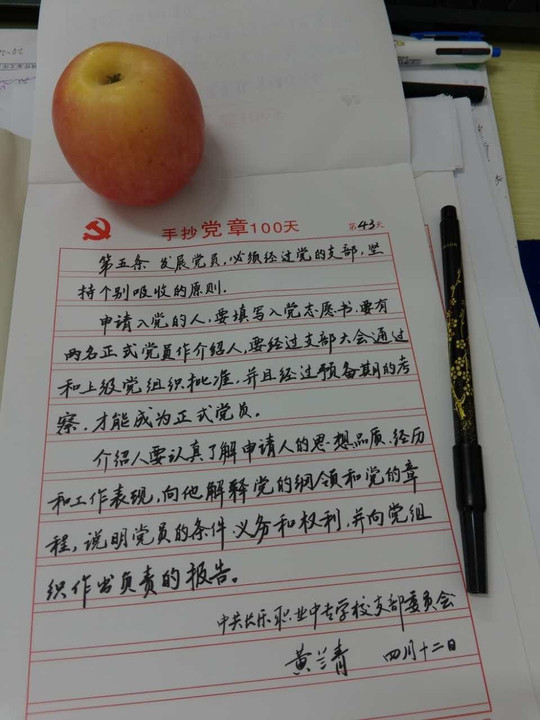 手抄党章100天
第43天
第五条 发展党员,必须经过党的支部,坚
持个别吸收的原则.
申请入党的人,要填写入党志愿书.要有
两名正式党员作介绍人,要经过支部大会通过
和上级党组织批准,并且经过预备期的考
察.才能成为正式党员。
介绍人要认真了解申请人的思想品质.经历
和工作表现,向他解释党的纲领和党的章
程,说明党员的条件 义务和权利,并向党组
织作出负责的报告。
中共长乐职业中专学校支部委员会
黄兰青 四月十二日